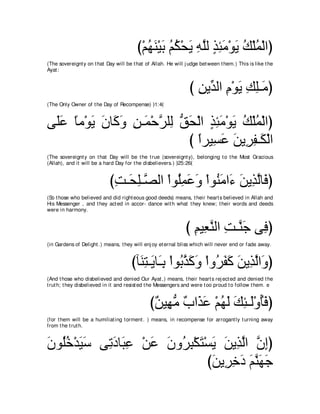 (الْمُلْكُ يَوْمَئِذٍ لِلَّهِ يَحْكُمُ بَيْنَهُمْ)
(The sovereignty on that Day will be that of Allah. He will judge between them.) This is like the
Ayat:
( مَـلِكِ يَوْمِ الدِّينِ )
(The Only Owner of the Day of Recompense.) 1:4(
(الْمُلْكُ يَوْمَئِذٍ الْحَقُّ لِلرَّحْمَـنِ وَكَانَ يَوْماً عَلَى
الْكَـفِرِينَ عَسِيراً )
(The sovereignty on that Day will be the true (sovereignty), belonging to the Most Gracious
(Allah), and it will be a hard Day for the disbelievers.) )25:26(
(فَالَّذِينَ ءَامَنُواْ وَعَمِلُواْ الصَّـلِحَـتِ)
(So those who believed and did righteous good deeds) means, their hearts believed in Allah and
His Messenger , and they acted in accor- dance with what they knew; their words and deeds
were in harmony.
(فِى جَنَّـتِ النَّعِيمِ )
(in Gardens of Delight.) means, they will enjoy eternal bliss which will never end or fade away.
(وَالَّذِينَ كَفَرُواْ وَكَذَّبُواْ بِـَايَـتِنَا)
(And those who disbelieved and denied Our Ayat,) means, their hearts rejected and denied the
truth; they disbelieved in it and resisted the Messengers and were too proud to follow them. e
(فَأُوْلَـئِكَ لَهُمْ عَذَابٌ مُّهِينٌ)
(for them will be a humiliating torment. ) means, in recompense for arrogantly turning away
from the truth.
(إِنَّ الَّذِينَ يَسْتَكْبِرُونَ عَنْ عِبَادَتِى سَيَدْخُلُونَ
جَهَنَّمَ دَخِرِينَ)